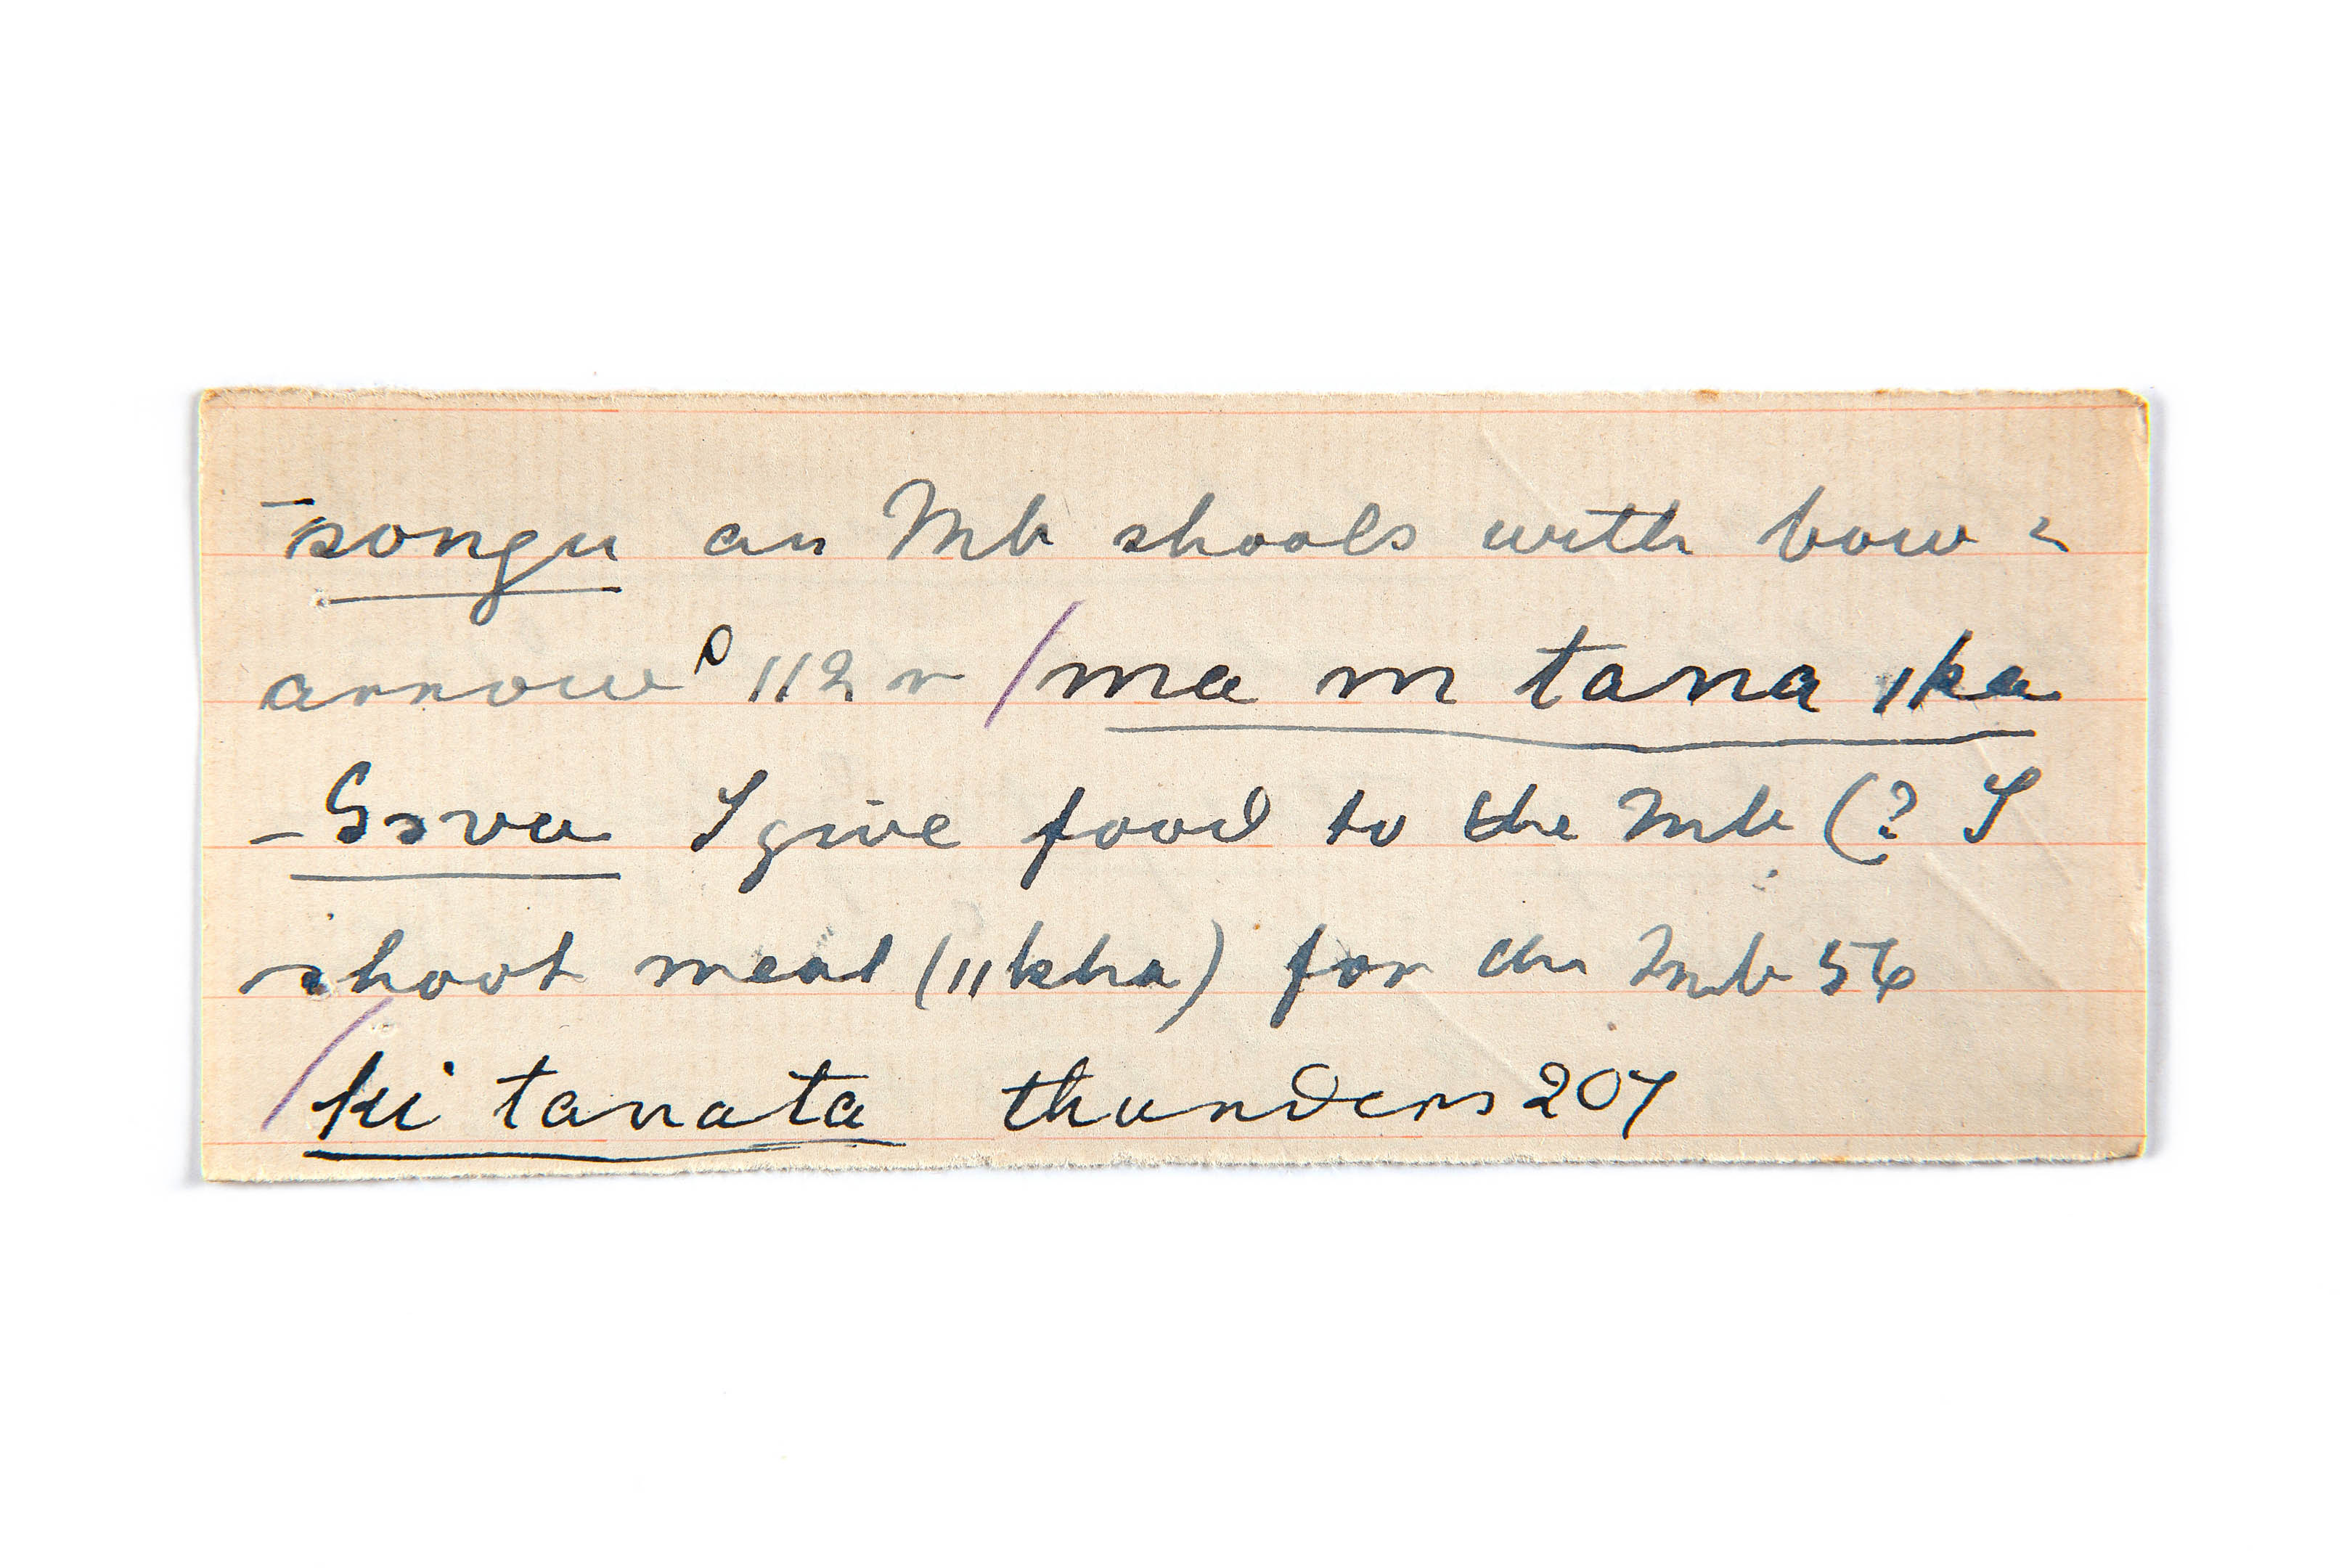 –songu an Mb shoots with bow &
arrow 112 r / ma m tana ǁka
– Gova I give food to the Mb (? I
shoot meat (ǁkha) for the Mb 56
/ ki tanata thunders 207